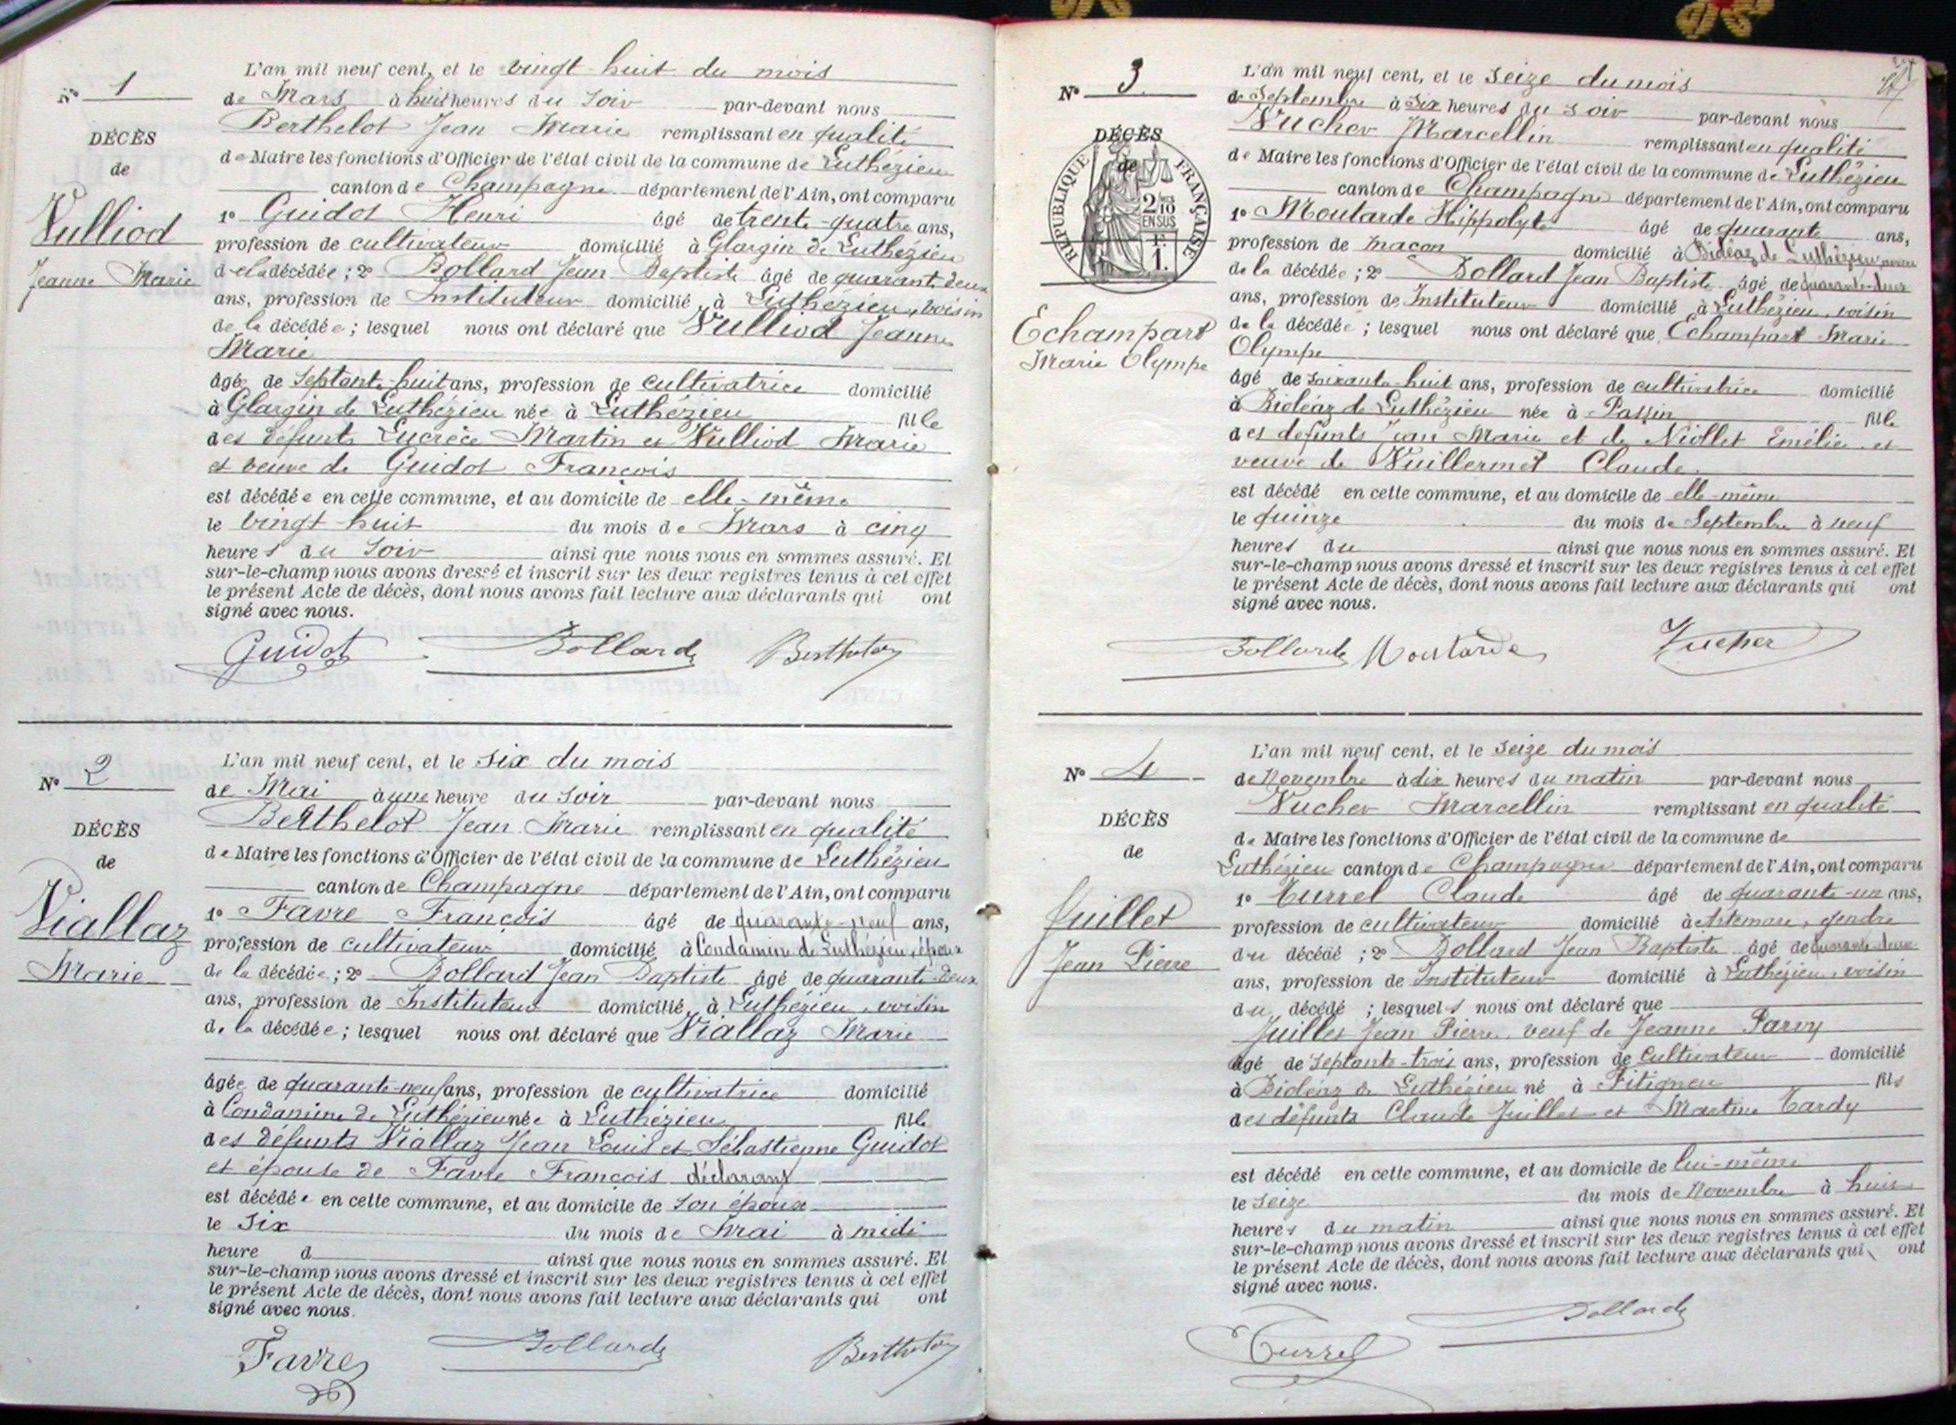 N° 1
DÉCÈS
de
Vulliod
Jeanne Marie
L'an mil neuf cent, et le vingt huit du mois
de Mars à huit heures du soir par-devant nous
Berthelot Jean Marie remplissant en qualité
de Maire les fonctions d'Officier de l'état civil de la commune de Luthézieu
canton de Champagne département de l'Ain, ont comparu
1° Guidot Henri âgé de trente-quatre ans,
profession de cultivateur domicilié à Glargin de Luthézieu
de la décédée ; 2° Bollard Jean Baptiste âgé de quarante deux
ans, profession de Instituteur domicilié à Luthézieu, voisin
de la décédée ; lesquel nous ont déclaré que Vulliod Jeanne
Marie
âgée de septante-huit ans, profession de cultivatrice domicilié
à Glargin de Luthézieu née à Luthézieu fille
des défunts Lucrèce Martin et Vulliod Marie
et veuve de Guidot François
est décédée en cette commune, et au domicile de elle-même
le vingt huit du mois de Mars à cinq
heures du soir ainsi que nous nous en sommes assuré. Et
sur-le-champ nous avons dressé et inscrit sur les deux registres tenus à cet effet
le présent Acte de décès, dont nous avons fait lecture aux déclarants qui ont
signé avec nous.
Guidot Bollard Berthelot
N° 2
DÉCÈS
de
Viallaz
Marie
L'an mil neuf cent, et le six du mois
de Mai à une heure du soir par-devant nous
Berthelot Jean Marie remplissant en qualité
de Maire les fonctions d'Officier de l'état civil de la commune de Luthézieu
canton de Champagne département de l'Ain, ont comparu
1° Favre François âgé de quarante-neuf ans,
profession de cultivateur domicilié à Condamine de Luthézieu, époux
de la décédée ; 2° Bollard Jean Baptiste âgé de quarante-deux
ans, profession de Instituteur domicilié à Luthézieu, voisin
de la décédée ; lesquel nous ont déclaré que Viallaz Marie
âgée de quarante-neuf ans, profession de cultivatrice domicilié
à Condamine de Luthézieu née à Luthézieu fille
des défunts Viallaz Jean Louis et Sébastienne Guidot
et épouse de Favre François déclarant
est décédée en cette commune, et au domicile de son époux
le six du mois de Mai à midi
heure d ainsi que nous nous en sommes assuré. Et
sur-le-champ nous avons dressé et inscrit sur les deux registres tenus à cet effet
le présent Acte de décès, dont nous avons fait lecture aux déclarants qui ont
signé avec nous.
Favre Bollard Berthelot
N° 3
DÉCÈS
de
RÉPUBLIQUE FRANÇAISE
2/10
EN SUS
1.
Echampart
Marie Olympe
L'an mil neuf cent, et le seize du mois
de Septembre à six heures du soir par-devant nous
Vucher Marcellin remplissant en qualité
de Maire les fonctions d'Officier de l'état civil de la commune de Luthézieu
canton de Champagne département de l'Ain, ont comparu
1° Moutarde Hippolyte âgé de quarante ans,
profession de maçon domicilié à Bidéaz de Luthézieu
de la décédée ; 2° Bollard Jean Baptiste âgé de quarante-deux
ans, profession de Instituteur domicilié à Luthézieu, voisin
de la décédée ; lesquel nous ont déclaré que Echampart Marie
Olympe
âgé de soixante-huit ans, profession de cultivatrice domicilié
à Bidéaz de Luthézieu née à Passin fille
des défunts Jean Marie et de Niollet Emélie et
veuve de Vuillermet Claude.
est décédé en cette commune, et au domicile de elle-même
le quinze du mois de Septembre à neuf
heures du ainsi que nous nous en sommes assuré. Et
sur-le-champ nous avons dressé et inscrit sur les deux registres tenus à cet effet
le présent Acte de décès, dont nous avons fait lecture aux déclarants qui ont
signé avec nous.
Bollard Moutarde Vucher
N° 4
DÉCÈS
de
Juillet
Jean Pierre
L'an mil neuf cent, et le seize du mois
de Novembre à dix heures du matin par-devant nous
Vucher Marcellin remplissant en qualité
de Maire les fonctions d'Officier de l'état civil de la commune de
Luthézieu canton de Champagne département de l'Ain, ont comparu
1° Turrel Claude âgé de quarante-un ans,
profession de cultivateur domicilié à Artemare, gendre
du décédé ; 2° Bollard Jean Baptiste âgé de quarante-deux
ans, profession de Instituteur domicilié à Luthézieu, voisin
du décédé ; lesquels nous ont déclaré que
Juillet Jean Pierre, veuf de Jeanne Parvy
âgé de septante-trois ans, profession de cultivateur domicilié
à Bidéaz de Luthézieu né à Fitignieu fils
des défunts Claude Juillet et Martine Tardy
est décédé en cette commune, et au domicile de lui-même
le seize du mois de Novembre à huit
heures du matin ainsi que nous nous en sommes assuré. Et
sur-le-champ nous avons dressé et inscrit sur les deux registres tenus à cet effet
le présent Acte de décès, dont nous avons fait lecture aux déclarants qui ont
signé avec nous.
Turrel Bollard